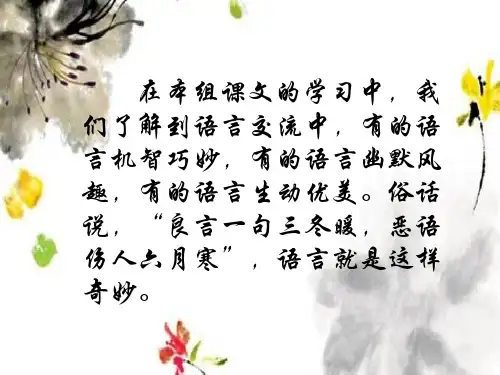 在本组课文的学习中，我
们了解到语言交流中，有的语
言机智巧妙，有的语言幽默风
趣，有的语言生动优美。俗话
说，“良言一句三冬暖，恶语
伤人六月寒”，语言就是这样
奇妙。